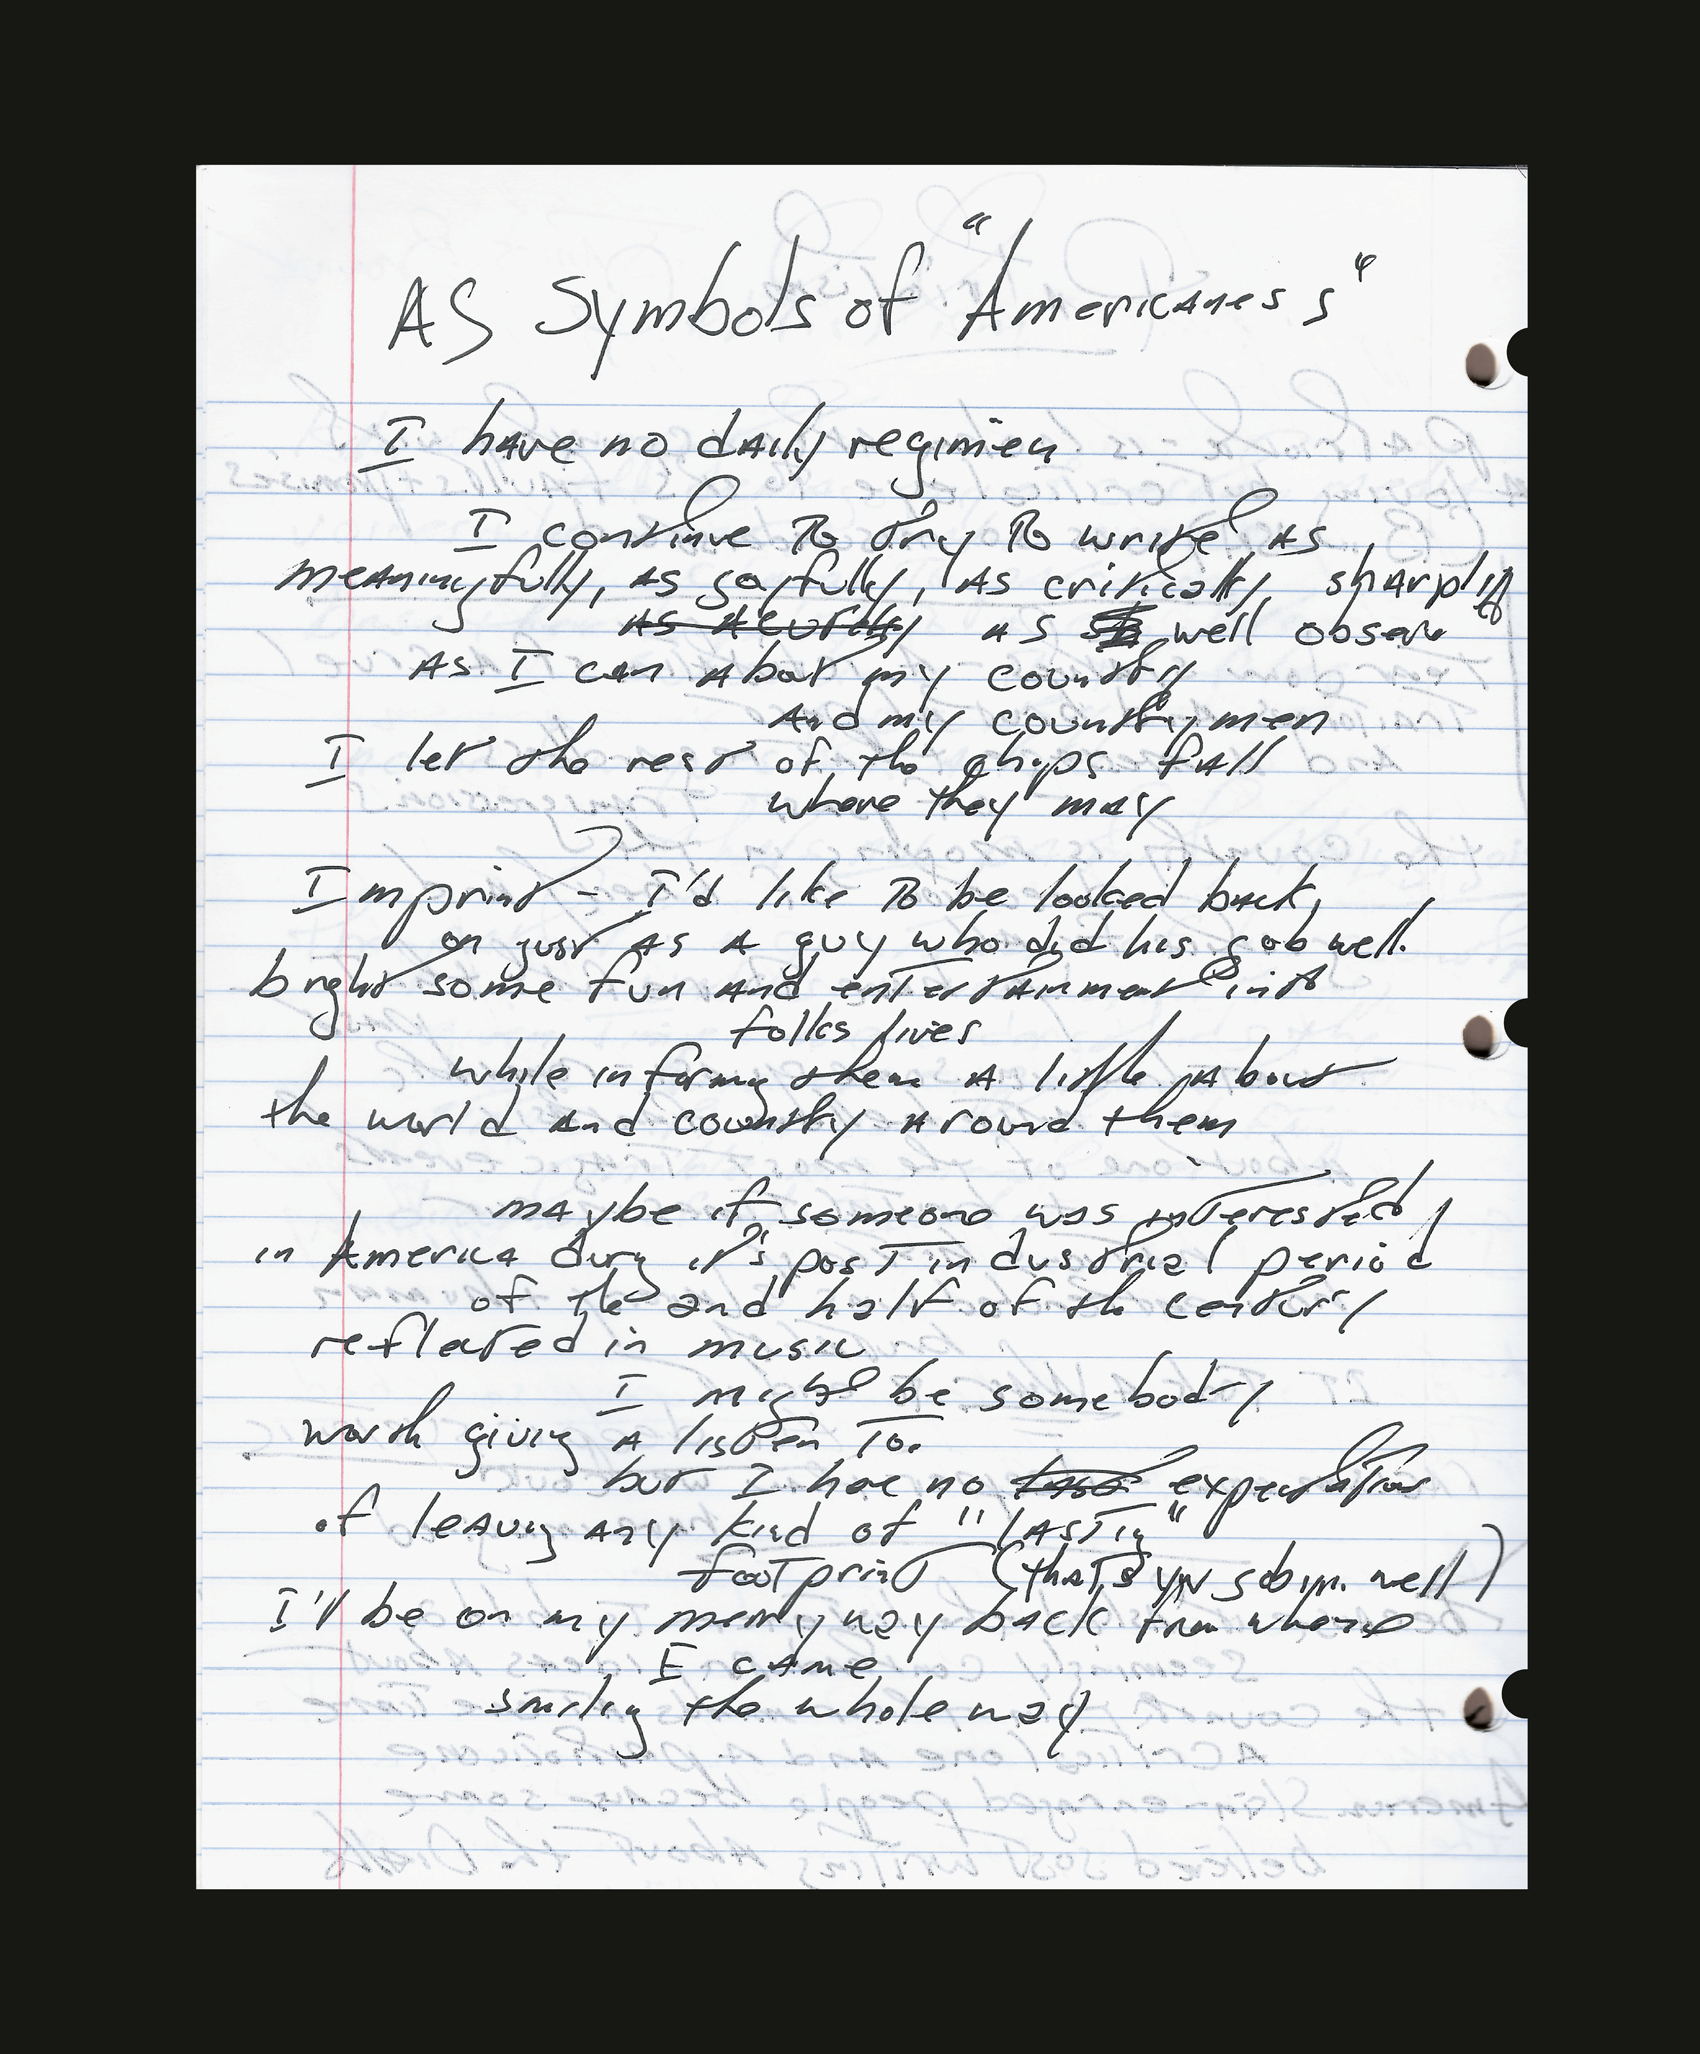 AS Symbols of "Americaness"
I have no daily regimien
I continue To try To write as
meaningfully, as joyfully, as critically, sharply
as as well observe
As I can about my country
And my countrymen
I let the rest of the chips fall
where they may
Imprint - I'd like To be looked back
on just as a guy who did his job well.
brght some fun and entertainment into
folks lives
while informg them a little about
the world and country around them
maybe if someone was interested
in America durg it's post industrial period
of the 2nd half of the century
reflected in music
I might be somebody
worth givig a listen To.
but I have no expectation
of leavig any kind of "lastig"
footprint (that's job well)
I'll be on my merry way back from where
I came
smilig the whole way